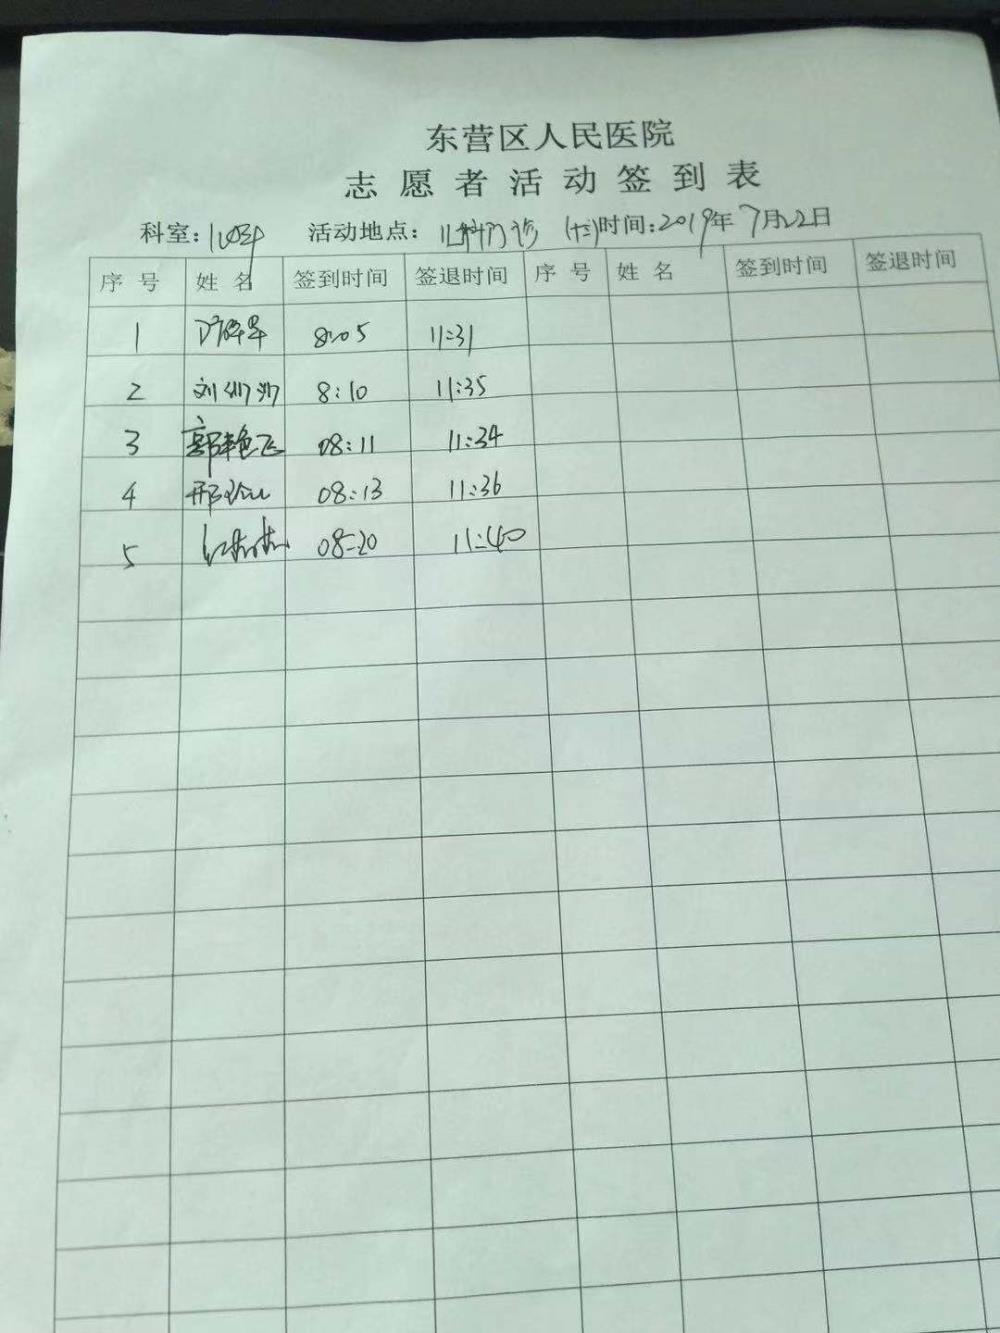 东营区人民医院
志愿者活动签到表
科室: 儿科 活动地点: 儿科门诊 时间:2019年7月22日
序号 姓名 签到时间 签退时间 序号 姓名 签到时间 签退时间
1 8:05 11:31
2 刘 8:10 11:35
3 郭艳飞 08:11 11:34
4 邢 08:13 11:36
5 08:20 11:40